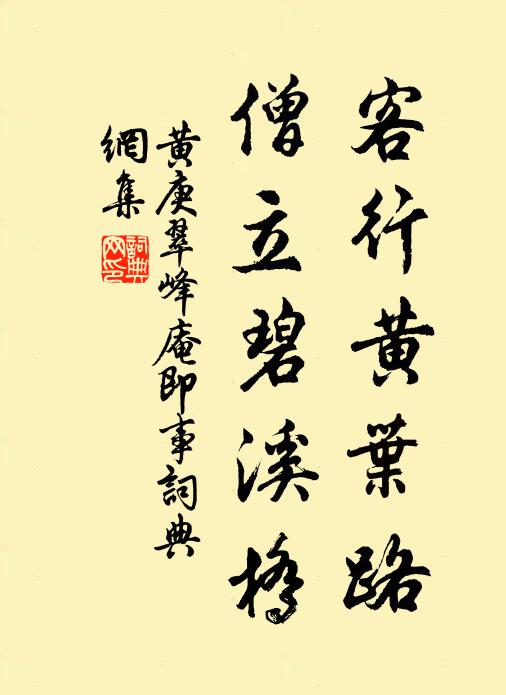 客行黃葉路
僧立碧溪橋
黃庚翠峰庵即事詞典
網集
詞典
网印